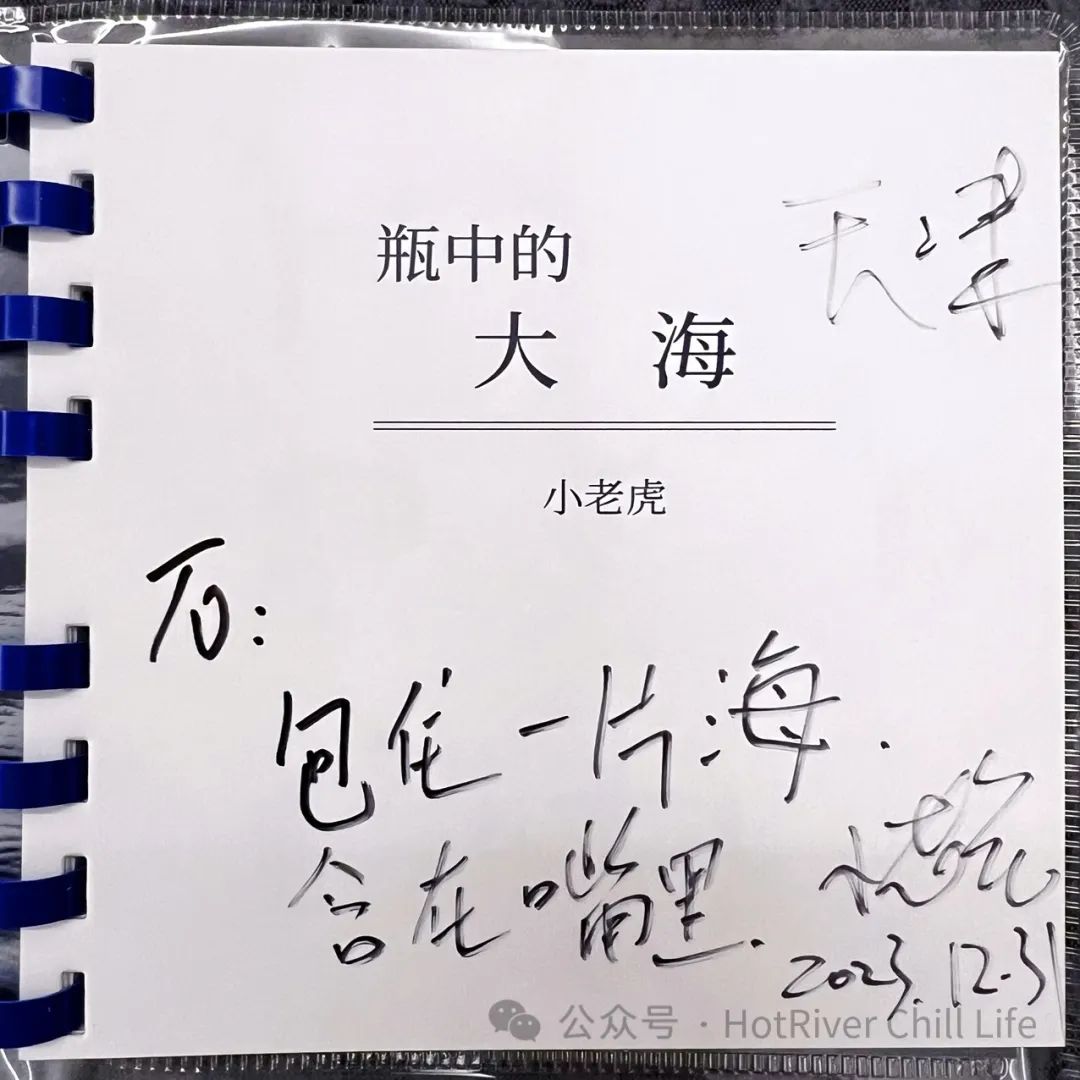 瓶中的
大 海
天津
小老虎
石:
包住一片海.
含在嘴里.
小老虎
2023.12.31
公众号 · HotRiver Chill Life